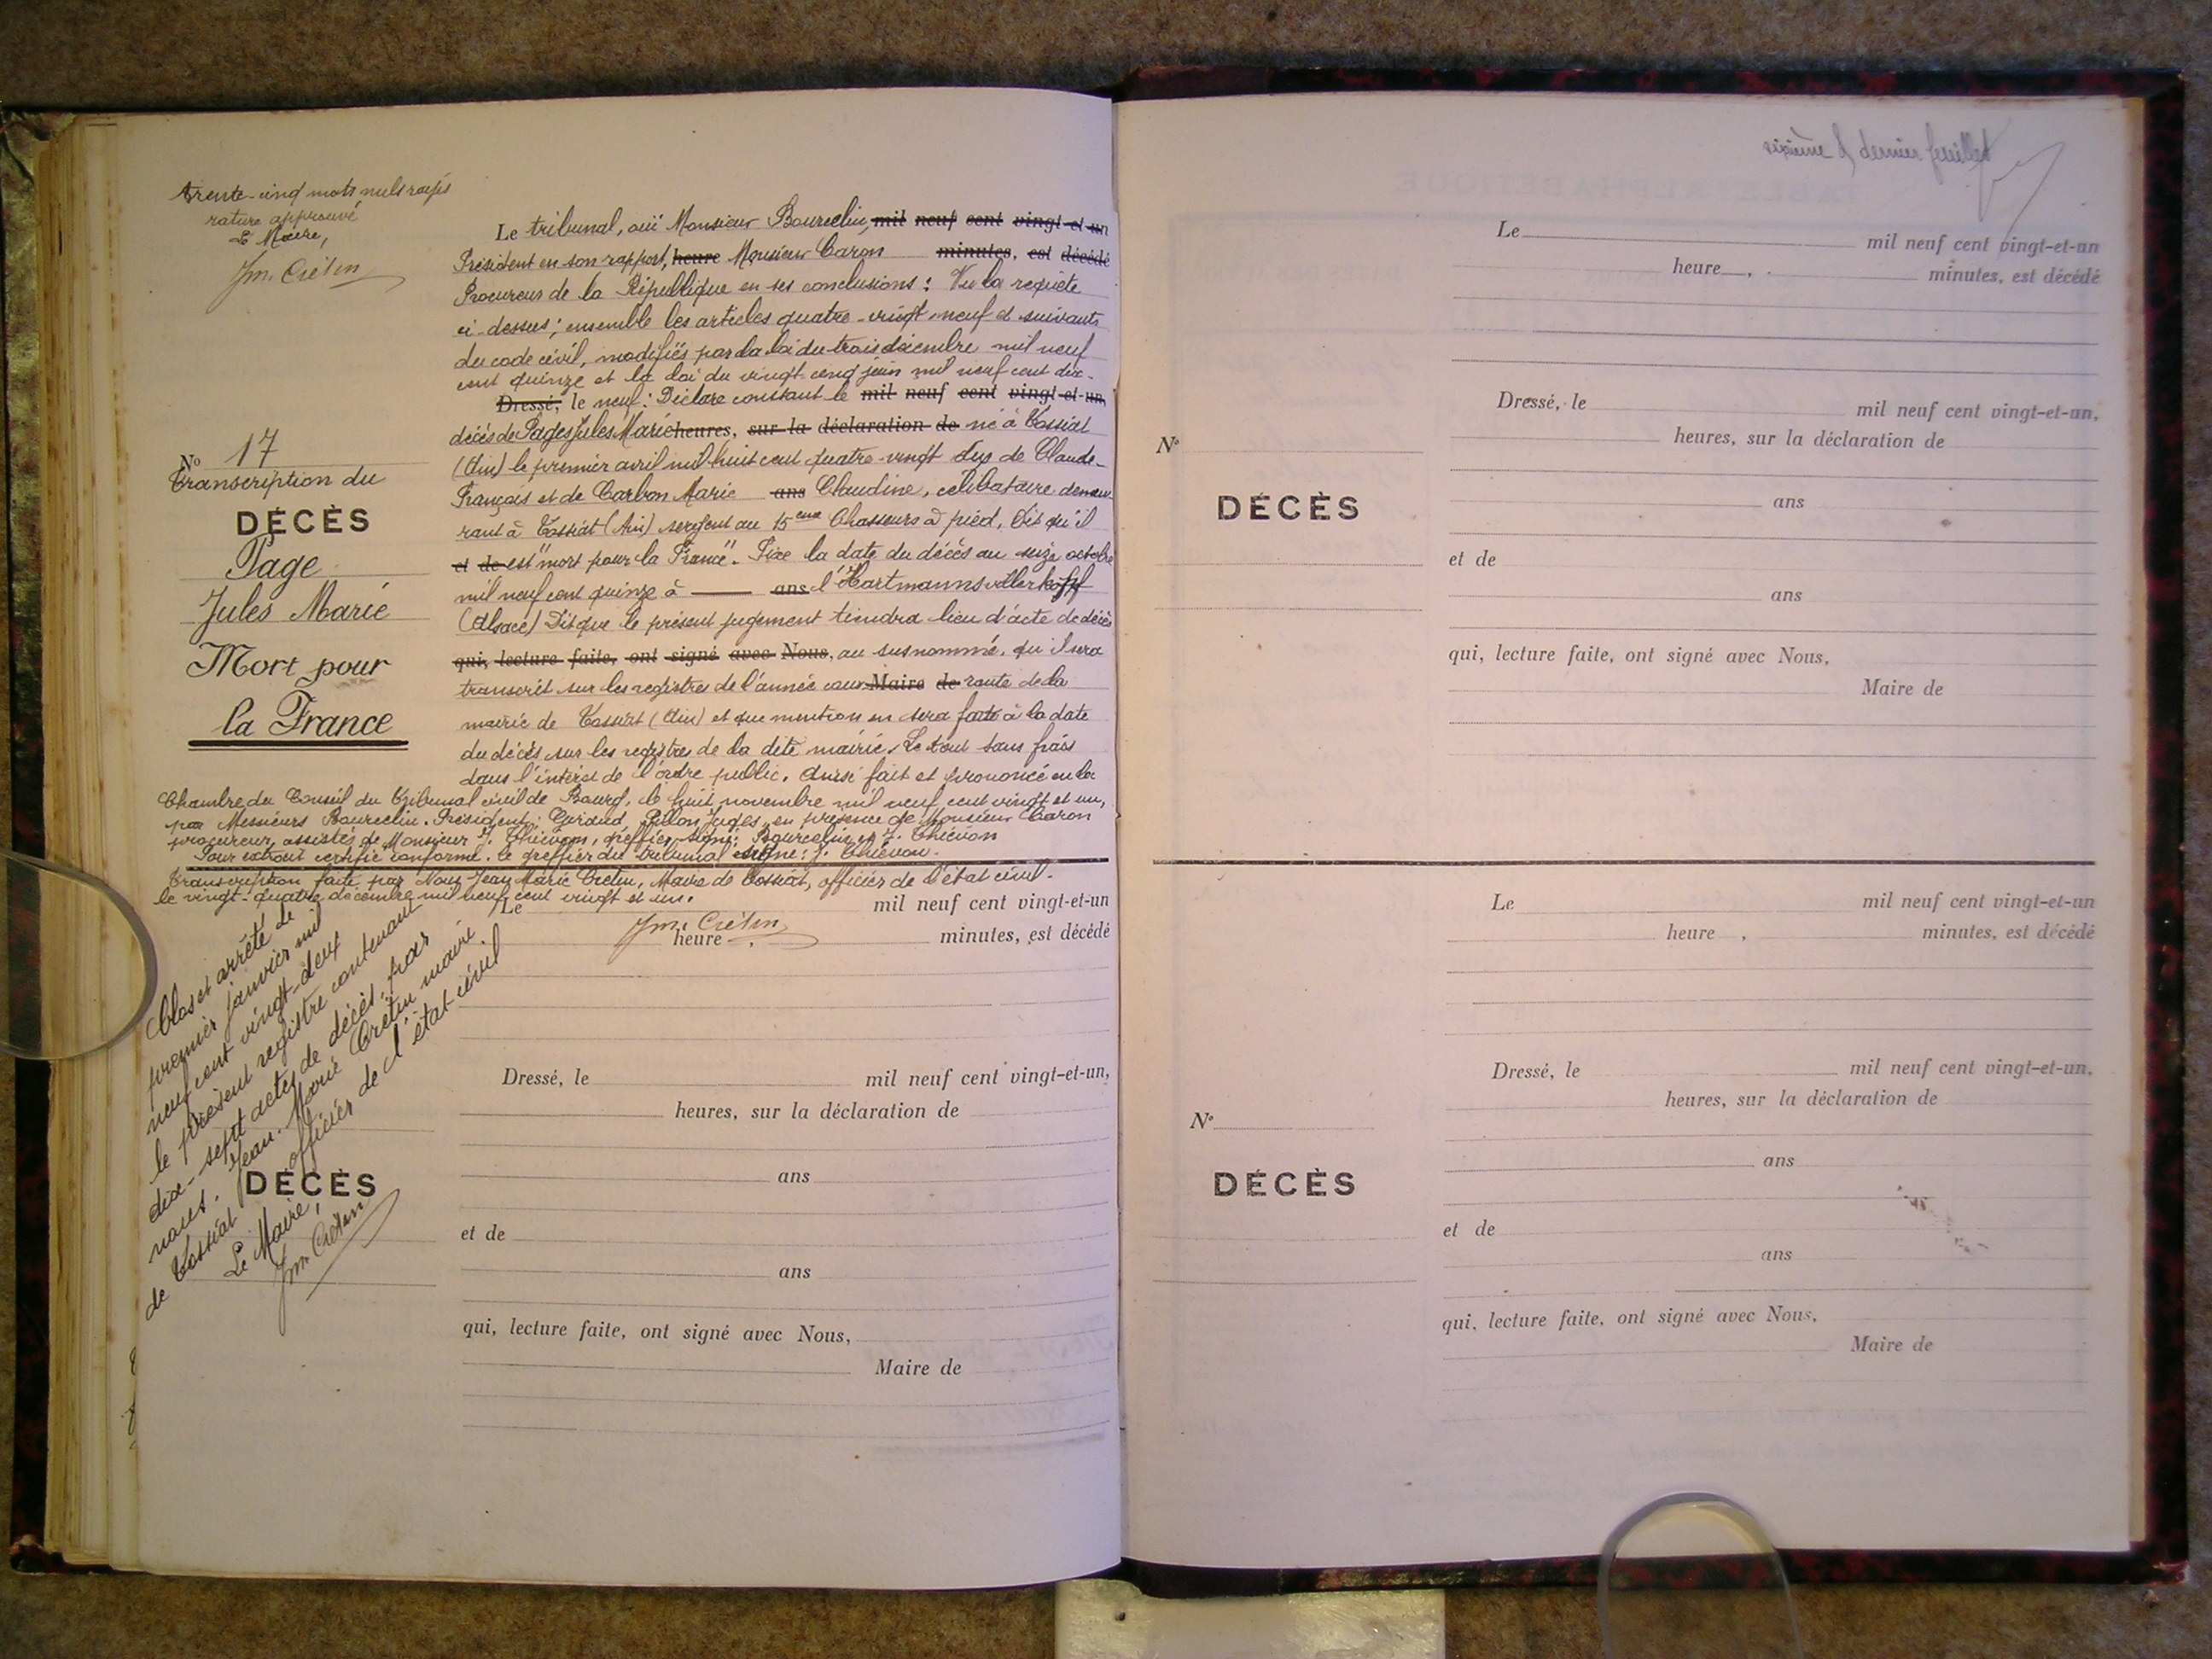 trente-cinq mots nuls rayés
rature approuvé
Le Maire,
Jm. Crétin
N° 17
transcription du
DÉCÈS
Page
Jules Marie
Mort pour
la France
Le tribunal, ouï Monsieur Bourcelin, mil neuf cent vingt-et-un
Président en son rapport, heure Monsieur Caron minutes, est décédé
Procureur de la République en ses conclusions : Vu la requête
ci-dessus ; ensemble les articles quatre-vingt neuf et suivants
du code civil, modifiés par la loi du trois décembre mil neuf
cent quinze et la loi du vingt cinq juin mil neuf cent dix-
Dressé, le neuf : Déclare constant le mil neuf cent vingt-et-un,
décès de Page Jules Marie heures, sur la déclaration de né à Tossiat
(Ain) le premier avril mil huit cent quatre-vingt dix de Claude-
François et de Carbon Marie ans Claudine, célibataire demeu-
rant à Tossiat (Ain) sergent au 15eme Chasseurs à pied, Dit qu'il
et de est "mort pour la France". Fixe la date du décès au seize octobre
mil neuf cent quinze à ans l'Hartmannsvillerkopf
(Alsace) Dit que le présent jugement tiendra lieu d'acte de décès
qui, lecture faite, ont signé avec Nous, au susnommé, qu'il sera
transcrit sur les registres de l'année cou- Maire de rante de la
mairie de Tossiat (Ain) et que mention en sera faite à la date
du décès sur les registres de la dite mairie. Le tout sans frais
dans l'intérêt de l'ordre public. Ainsi fait et prononcé en la
Chambre du Conseil du Tribunal civil de Bourg, le huit novembre mil neuf cent vingt et un,
par Messieurs Bourcelin. Président, Juges, en présence de Monsieur Caron
procureur, assistés de Monsieur J. Thiévon, greffier. signé: Bourcelin et J. Thiévon
Pour extrait certifié conforme. le greffier du tribunal signé: J. Thiévon.
Transcription faite par Nous Jean Marie Cretin, Maire de Tossiat, officier de l'état civil.
le vingt-quatre décembre mil neuf cent vingt et un.
Jm. Crétin
Clos et arrêté le
premier janvier mil
neuf cent vingt-deux
le présent registre contenant
dix-sept actes de décès, par
nous. Jean. Marie Cretin maire
de Tossiat officier de l'état civil
Le Maire,
Jm. Crétin
DÉCÈS
Le mil neuf cent vingt-et-un
heure , minutes, est décédé
Dressé, le mil neuf cent vingt-et-un,
heures, sur la déclaration de
ans
et de
ans
qui, lecture faite, ont signé avec Nous,
Maire de
sixième & dernier feuillet
N°
DÉCÈS
Le mil neuf cent vingt-et-un
heure , minutes, est décédé
Dressé, le mil neuf cent vingt-et-un,
heures, sur la déclaration de
ans
et de
ans
qui, lecture faite, ont signé avec Nous,
Maire de
N°
DÉCÈS
Le mil neuf cent vingt-et-un
heure , minutes, est décédé
Dressé, le mil neuf cent vingt-et-un,
heures, sur la déclaration de
ans
et de
ans
qui, lecture faite, ont signé avec Nous,
Maire de